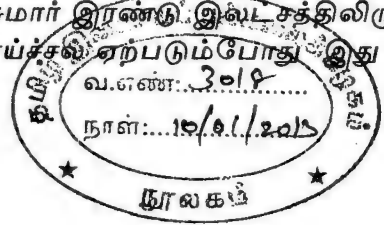 சுமார் இரண்டு இலட்சத்திலிரு
ய்ச்சல் ஏற்படும்போது இது
வ.எண்: 3018
நாள்: 10/01/2013
நூலகம்